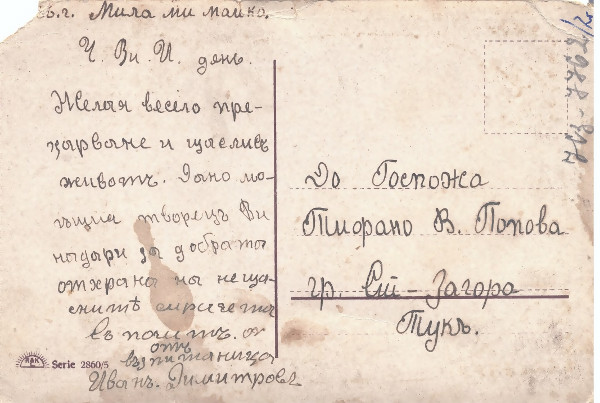 ъ.г. Мила ми майко.
Ч. Ви. И. день.
Желая весело пре-
карване и щасливъ
животъ. Дано мо-
гъщия творецъ Ви
надари за добрата
отхрана на неща-
снитѣ сирачета
въ
отъ
възпитаница
Иванъ. Димитровъ
RAK
Serie 2860/5
До Госпожа
В. Попова
гр. Ст - Загора
Тукъ.